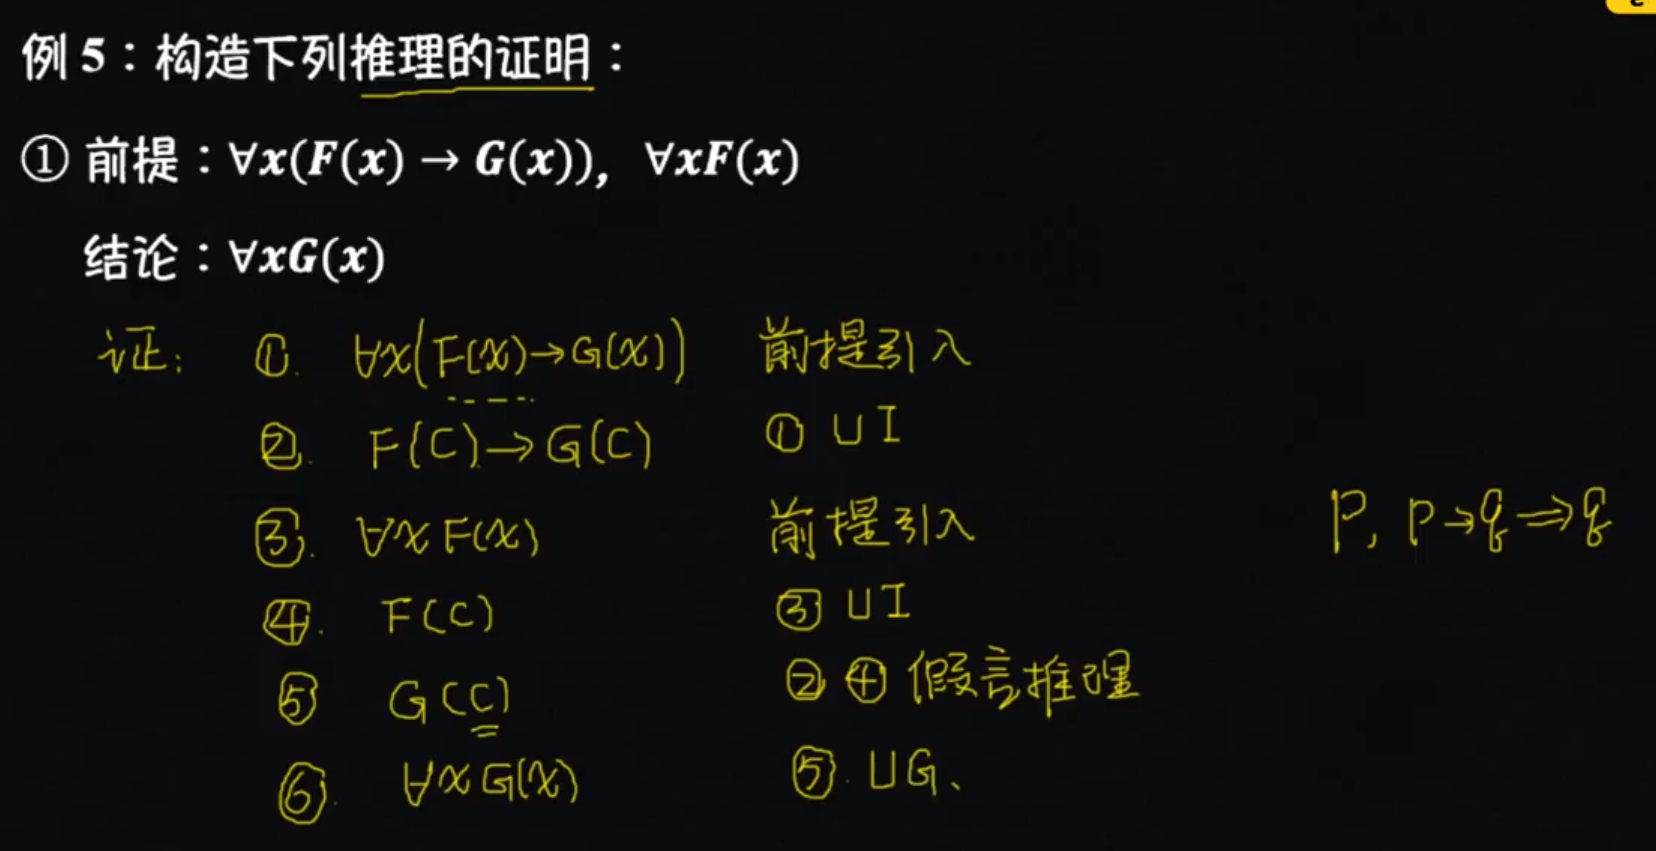 例 5：构造下列推理的证明：
① 前提：∀x(F(x) → G(x)), ∀xF(x)
结论：∀xG(x)
证: ①. ∀x(F(x)→G(x)) 前提引入
②. F(C)→G(C) ① UI
③. ∀xF(x) 前提引入
P, P→q⇒q
④. F(C) ③ UI
⑤ G(C) ② ④ 假言推理
⑥. ∀xG(x) ⑤. UG、